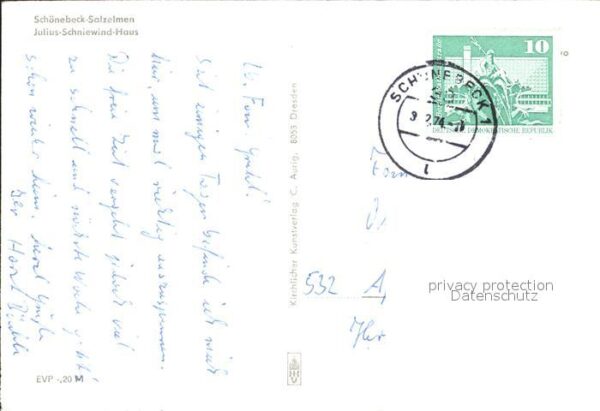 Schönebeck-Salzelmen
Julius-Schniewind-Haus
Lb. Frau
Seit einigen Tagen befinde ich mich
hier, um mal richtig auszuspannen.
Die freie Zeit vergeht jedoch viel
zu schnell und nächste Woche
schon wieder heim. Herzl. Grüße
Ihr Horst
EVP -,20 M
Kirchlicher Kunstverlag C. Aurig, 8053 Dresden
10
DEUTSCHE DEMOKRATISCHE REPUBLIK
SCHÖNEBECK 1
l
532 A
privacy protection
Datenschutz